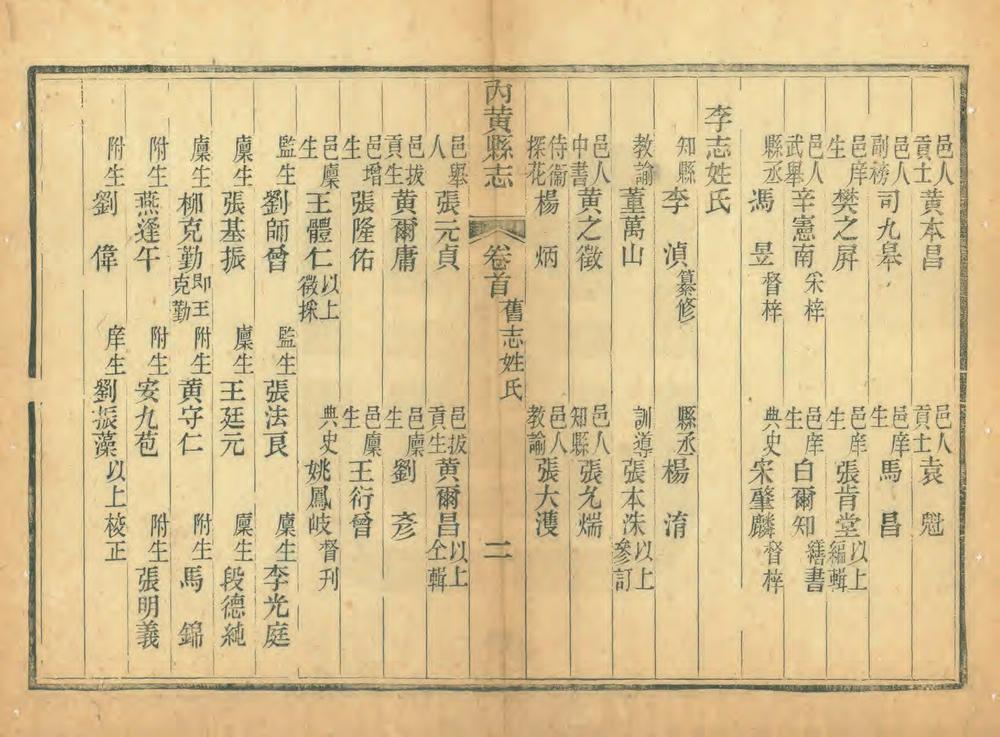 邑人貢士黃本昌 邑人貢士袁魁
邑人副榜司九皋 邑庠生馬昌
邑庠生樊之屏 邑庠生張肯堂以上編輯
邑人武舉辛憲南采梓 邑庠生白爾知繕書
縣丞馮昱督梓 典史宋肇麟督梓
李志姓氏
知縣李湞纂修 縣丞楊淯
教諭董萬山 訓導張本洙以上參訂
邑人中書黃之徵 邑人知縣張允煓
侍衞探花楊炳 邑人教諭張大濩
內黃縣志 卷首 舊志姓氏 二
邑舉人張元貞 邑拔貢生黃爾昌以上仝輯
邑拔貢生黃爾庸 邑廩生劉彥
邑增生張隆佑 邑廩生王衍曾
邑廩生王體仁以上徵採 典史姚鳳岐督刊
監生劉師曾 監生張法良 廩生李光庭
廩生張基振 廩生王廷元 廩生段德純
廩生柳克勤即王克勤 附生黃守仁 附生馬錦
附生燕逢午 附生安九苞 附生張明義
附生劉偉 庠生劉振藻以上校正